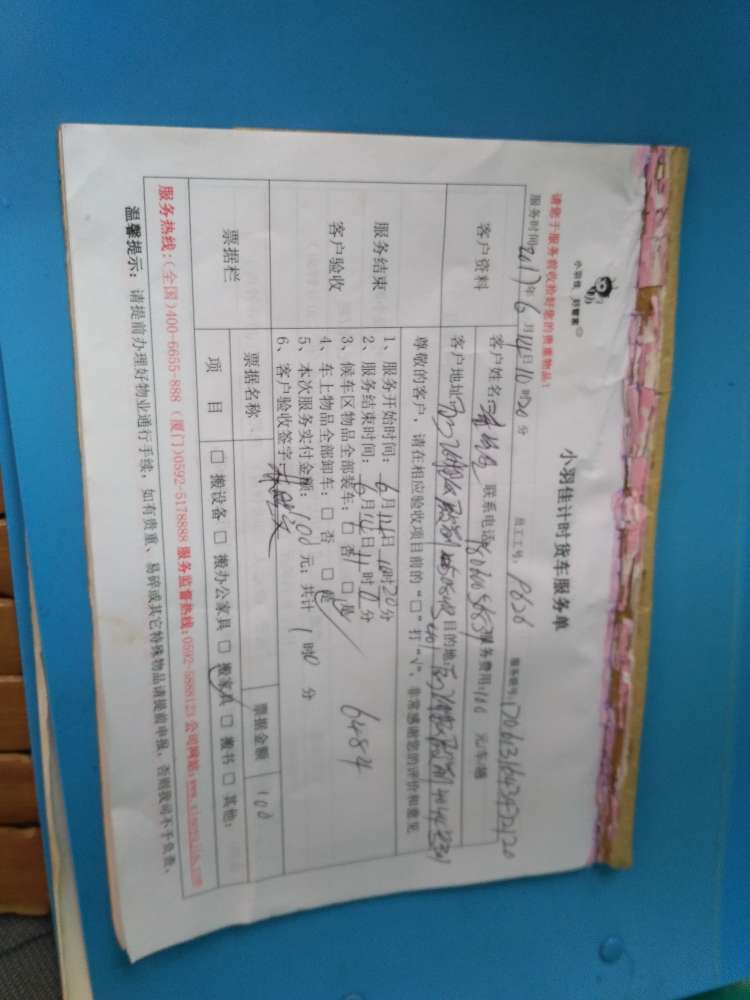 小羽佳 好管家
小羽佳计时货车服务单
请您于服务前收拾好您的贵重物品!
服务时间:2017年6月14日10时20分 员工工号: P626 服务单号:
客户资料
客户姓名: 联系电话: 服务费用:100 元/车/趟
客户地址: 目的地:
尊敬的客户,请在相应验收项目前的“□”打“√”,非常感谢您的评价和意见
服务结束
客户验收
1、服务开始时间:6月14日10时20分
2、服务结束时间:6月14日11时 分
3、候车区物品全部装车:□ 否 □ 是
4、车上物品全部卸车:□ 否 □ 是
6484
5、本次服务实付金额:100 元;共计 1 时0 分
6、客户验收签字:
票据栏
票据名称 票据金额 100
项 目 □ 搬设备 □ 搬办公家具 □ 搬家具 □ 搬书 □ 其他:
服务热线:(全国)400-6655-888 (厦门)0592-5178888 服务监督热线:0592-5888121 公司网站:
温馨提示: 请提前办理好物业通行手续,如有贵重、易碎或其它特殊物品请提前申报,否则我司不予负责。